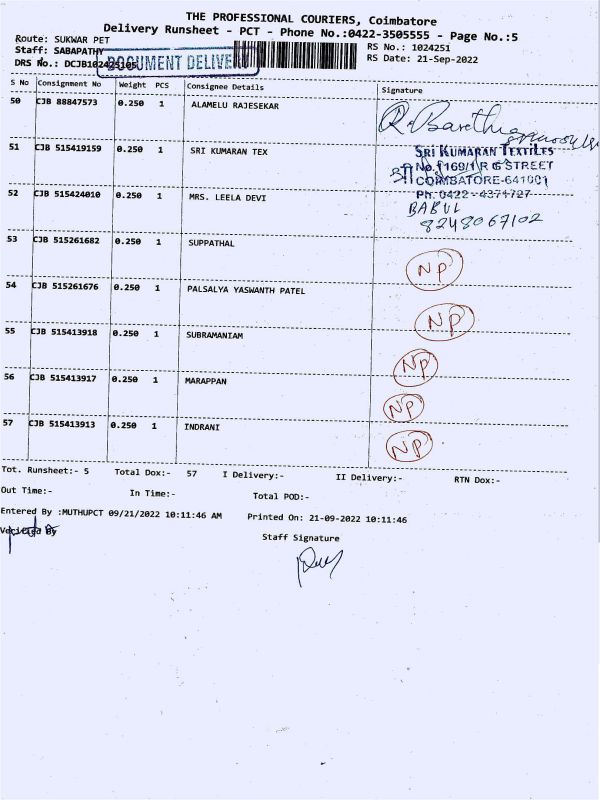 THE PROFESSIONAL COURIERS, Coimbatore
Delivery Runsheet - PCT - Phone No.:0422-3505555 - Page No.:5
Route: SUKWAR PET
RS No.: 1024251
Staff: SABAPATHY
DOCUMENT DELIVERY
RS Date: 21-Sep-2022
DRS No.: DCJB102425105
S No Consignment No Weight PCS Consignee Details Signature
50 CJB 88847573 0.250 1 ALAMELU RAJESEKAR
51 CJB 515419159 0.250 1 SRI KUMARAN TEX
SRI KUMARAN TEXTILES
No.1169/1 R G STREET
COIMBATORE-641001
Ph: 0422-4371727
52 CJB 515424010 0.250 1 MRS. LEELA DEVI
BABUL
8248067102
53 CJB 515261682 0.250 1 SUPPATHAL NP
54 CJB 515261676 0.250 1 PALSALYA YASWANTH PATEL NP
55 CJB 515413918 0.250 1 SUBRAMANIAM NP
56 CJB 515413917 0.250 1 MARAPPAN NP
57 CJB 515413913 0.250 1 INDRANI NP
Tot. Runsheet:- 5 Total Dox:- 57 I Delivery:- II Delivery:- RTN Dox:-
Out Time:- In Time:- Total POD:-
Entered By :MUTHUPCT 09/21/2022 10:11:46 AM Printed On: 21-09-2022 10:11:46
Verified By
Staff Signature